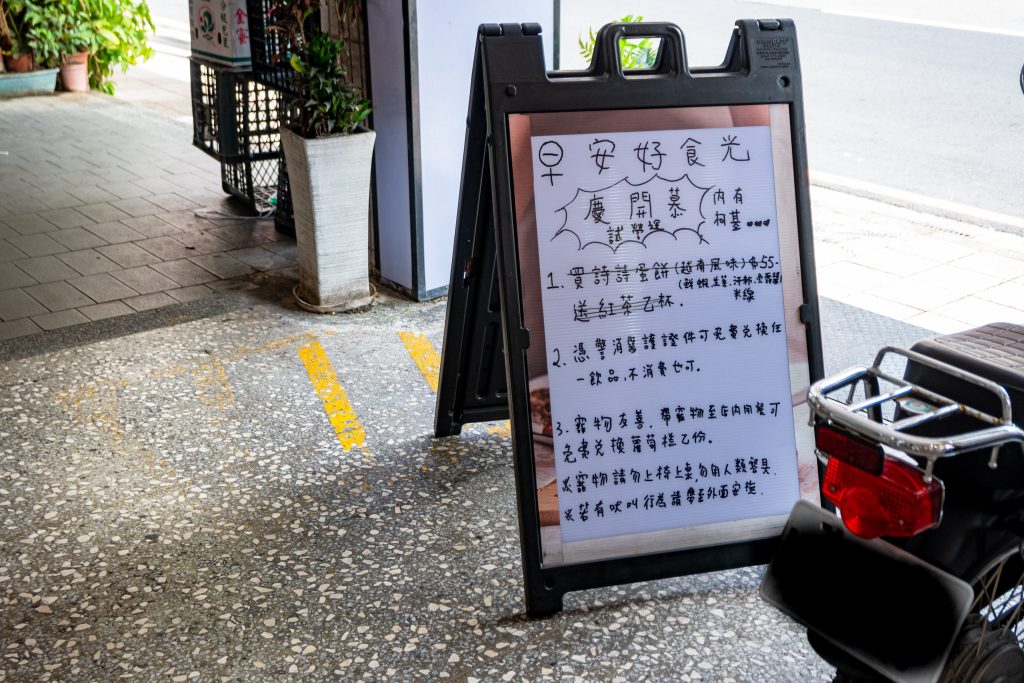 早安好食光
慶開幕
試營運
內有
柯基
1. 買詩詩蛋餅(越南風味)各55-
送紅茶乙杯.
米線
2. 憑警消醫護證件可免費兌換任
一飲品,不消費也可。
3. 寵物友善,帶寵物至店內用餐可
免費兌換蘿蔔糕乙份。
※寵物請勿上椅上桌,勿用人類餐具.
※若有吠叫行為請帶至外面安撫.